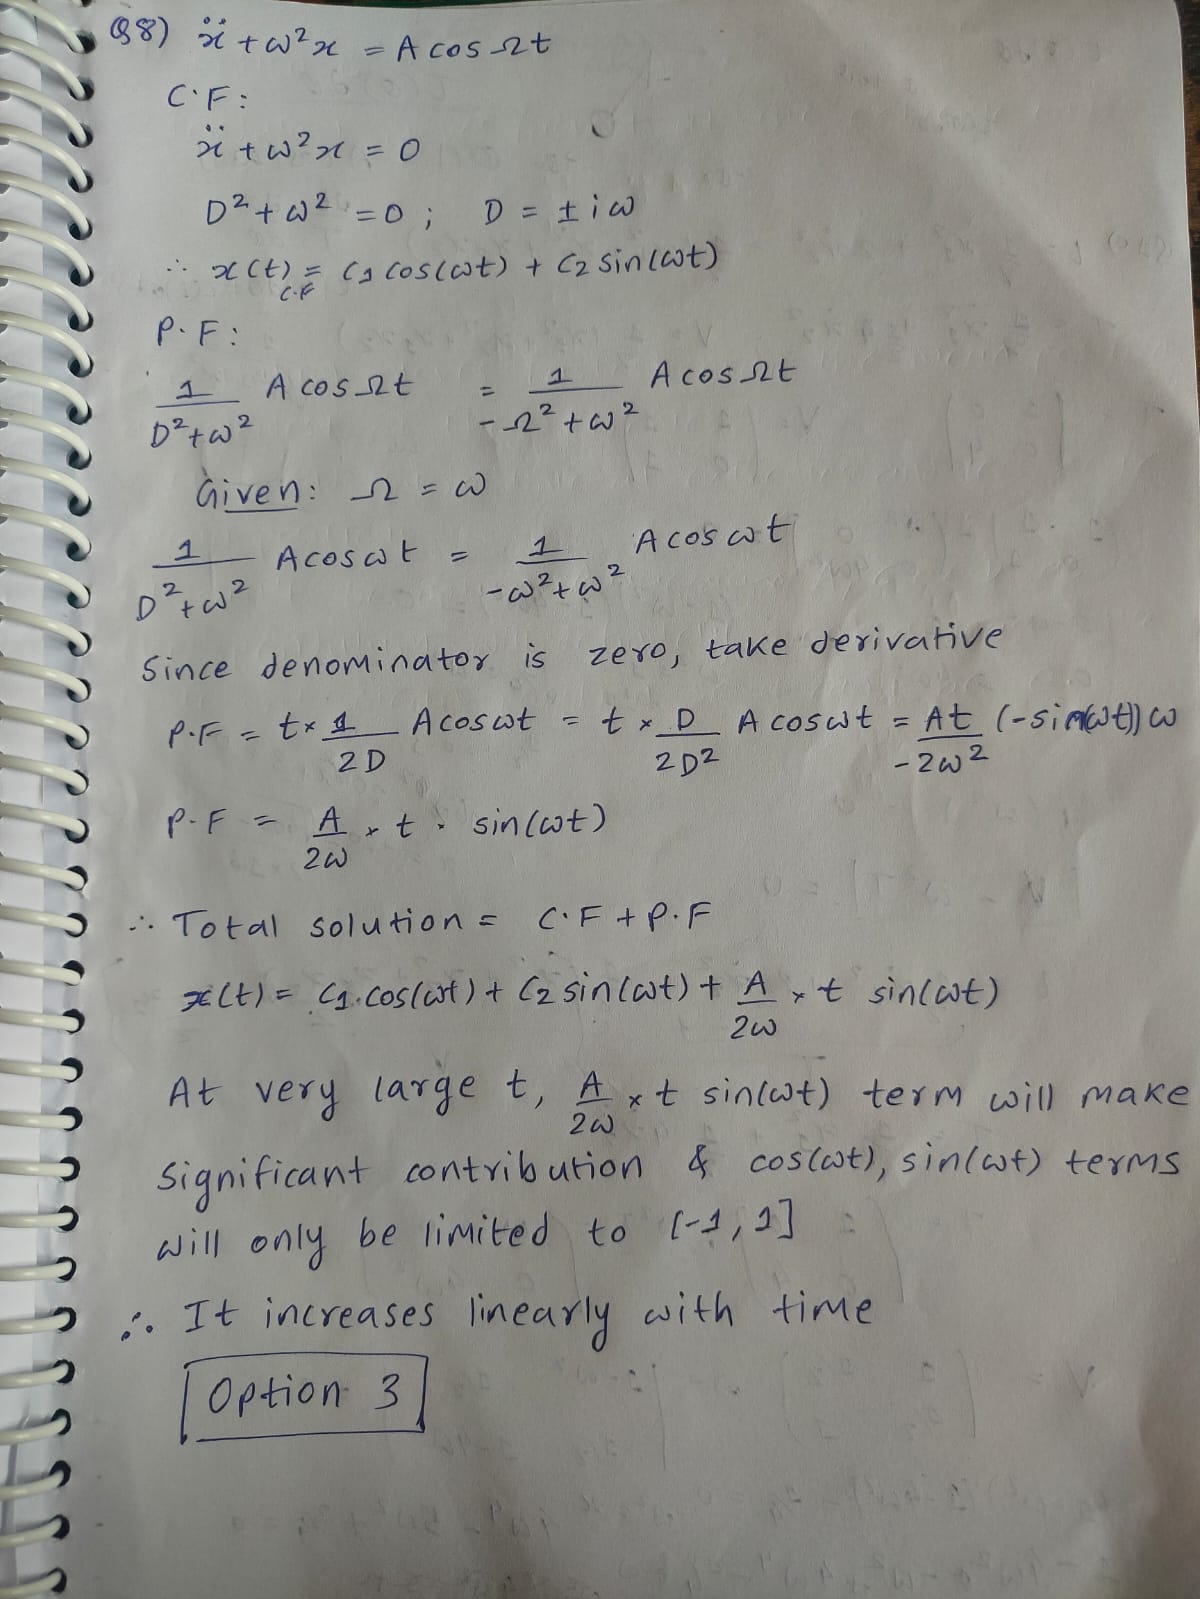 Q8) ẍ + ω²x = A cos Ωt
C.F:
ẍ + ω²x = 0
D² + ω² = 0 ; D = ± iω
∴ x(t)_C.F = C₁ cos(ωt) + C₂ sin(ωt)
P.F:
1/(D²+ω²) A cos Ωt = 1/(-Ω²+ω²) A cos Ωt
Given: Ω = ω
1/(D²+ω²) A cos ωt = 1/(-ω²+ω²) A cos ωt
Since denominator is zero, take derivative
P.F = t × 1/2D A cos ωt = t × D/2D² A cos ωt = At/-2ω² (-sin(ωt)) ω
P.F = A/2ω × t · sin(ωt)
∴ Total solution = C.F + P.F
x(t) = C₁.cos(ωt) + C₂ sin(ωt) + A/2ω × t sin(ωt)
At very large t, A/2ω × t sin(ωt) term will make
significant contribution & cos(ωt), sin(ωt) terms
will only be limited to [-1, 1]
∴ It increases linearly with time
Option 3